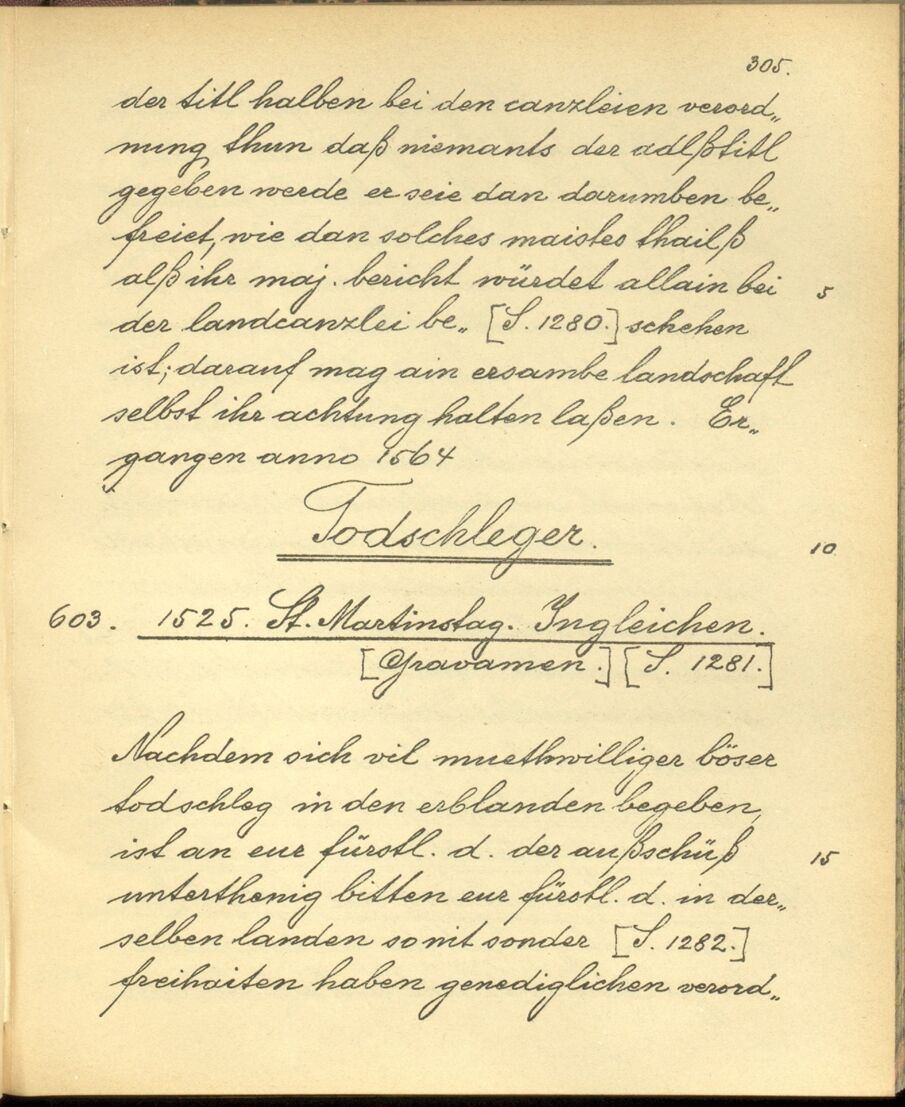 305.
der titl halben bei den canzleien verord„
nung thun daß niemants der adlßtitl
gegeben werde er seie dan darumben be„
freiet, wie dan solches maistes thailß
alß ihr maj. bericht würdet allain bei 5
der landcanzlei be„ [S. 1280.] schehen
ist; darauf mag ain ersambe landschaft
selbst ihr achtung halten laßen. Er„
gangen anno 1564
Todschleger. 10
603. 1525. St. Martinstag. Ingleichen.
[Gravamen.] [S. 1281.]
Nachdem sich vil muethwilliger böser
todschleg in den erblanden begeben,
ist an eur fürstl. d. der außschüß 15
unterthenig bitten eur fürstl. d. in der„
selben landen so nit sonder [S. 1282.]
freihaiten haben genediglichen verord„